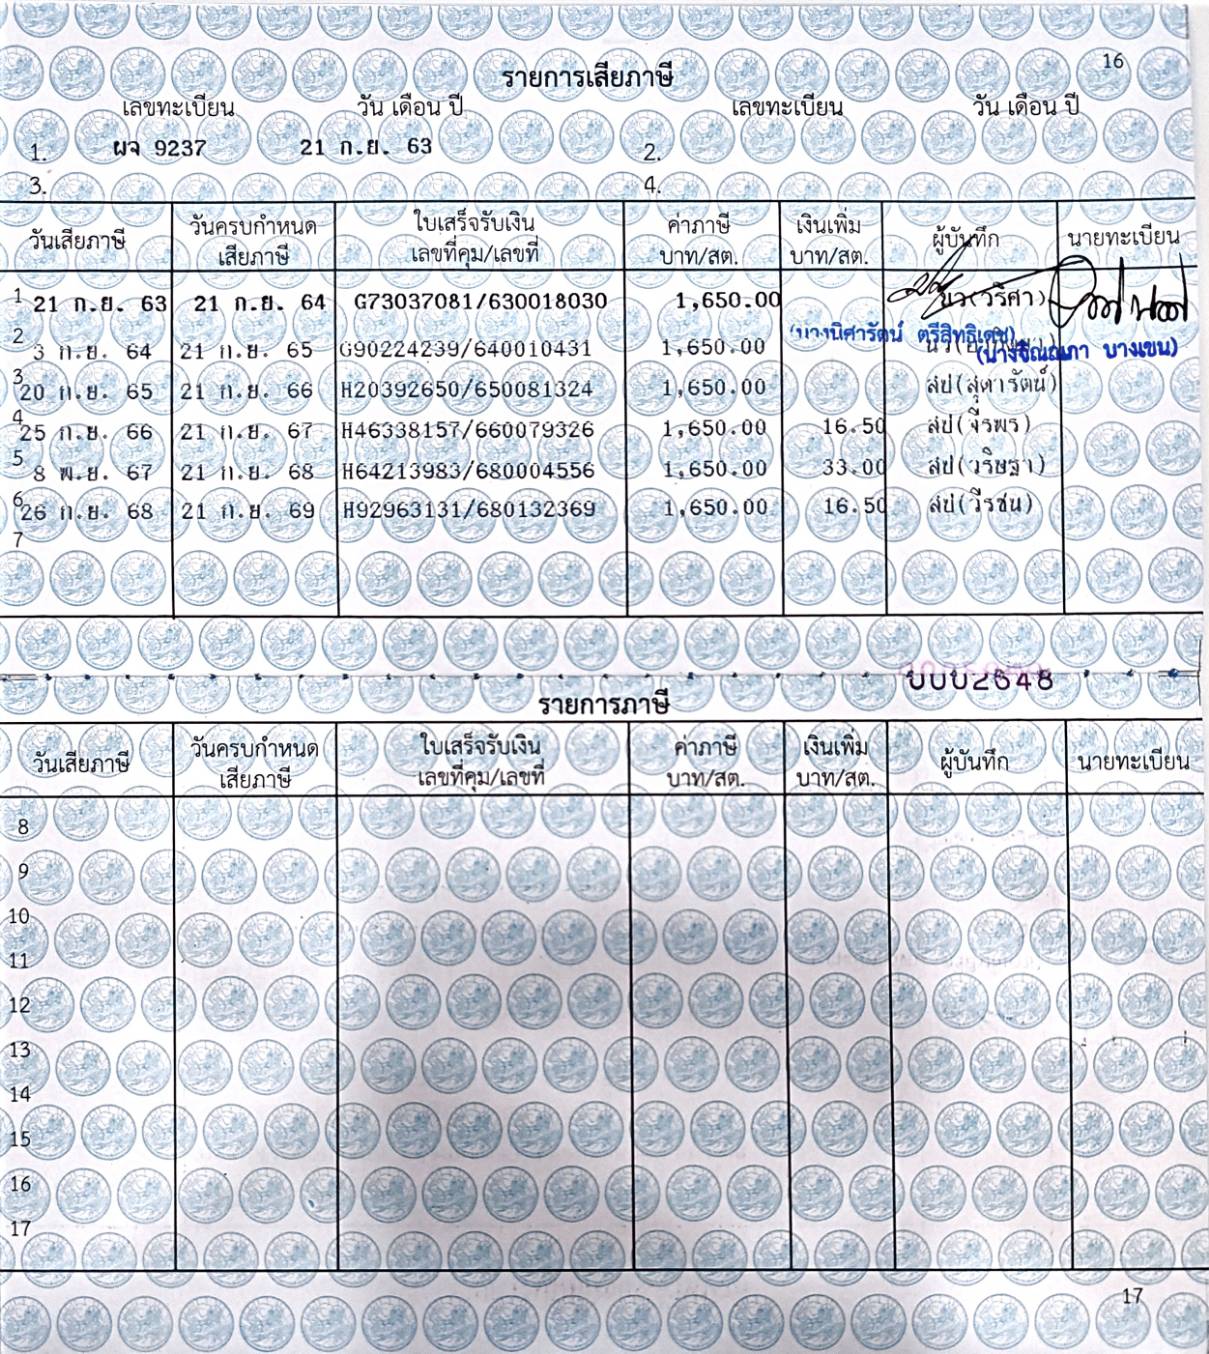 16
รายการเสียภาษี
เลขทะเบียน วัน เดือน ปี เลขทะเบียน วัน เดือน ปี
1. ผจ 9237 21 ก.ย. 63 2.
3. 4.
วันเสียภาษี วันครบกำหนด เสียภาษี ใบเสร็จรับเงิน เลขที่คุม/เลขที่ ค่าภาษี บาท/สต. เงินเพิ่ม บาท/สต. ผู้บันทึก นายทะเบียน
1 21 ก.ย. 63 21 ก.ย. 64 G73037081/630018030 1,650.00 นว(วริศา)
(นางนิศารัตน์ ตรีสิทธิเดช)
2 3 ก.ย. 64 21 ก.ย. 65 G90224239/640010431 1,650.00 บางเขน)
3 20 ก.ย. 65 21 ก.ย. 66 H20392650/650081324 1,650.00 สป(สุดารัตน์)
4 25 ก.ย. 66 21 ก.ย. 67 H46338157/660079326 1,650.00 16.50 สป(จีรพร)
5 8 พ.ย. 67 21 ก.ย. 68 H64213983/680004556 1,650.00 33.00 สป(วริษฐา)
6 26 ก.ย. 68 21 ก.ย. 69 H92963131/680132369 1,650.00 16.50 สป(วีรชน)
7
0002648
รายการภาษี
วันเสียภาษี วันครบกำหนด เสียภาษี ใบเสร็จรับเงิน เลขที่คุม/เลขที่ ค่าภาษี บาท/สต. เงินเพิ่ม บาท/สต. ผู้บันทึก นายทะเบียน
8
9
10
11
12
13
14
15
16
17
17